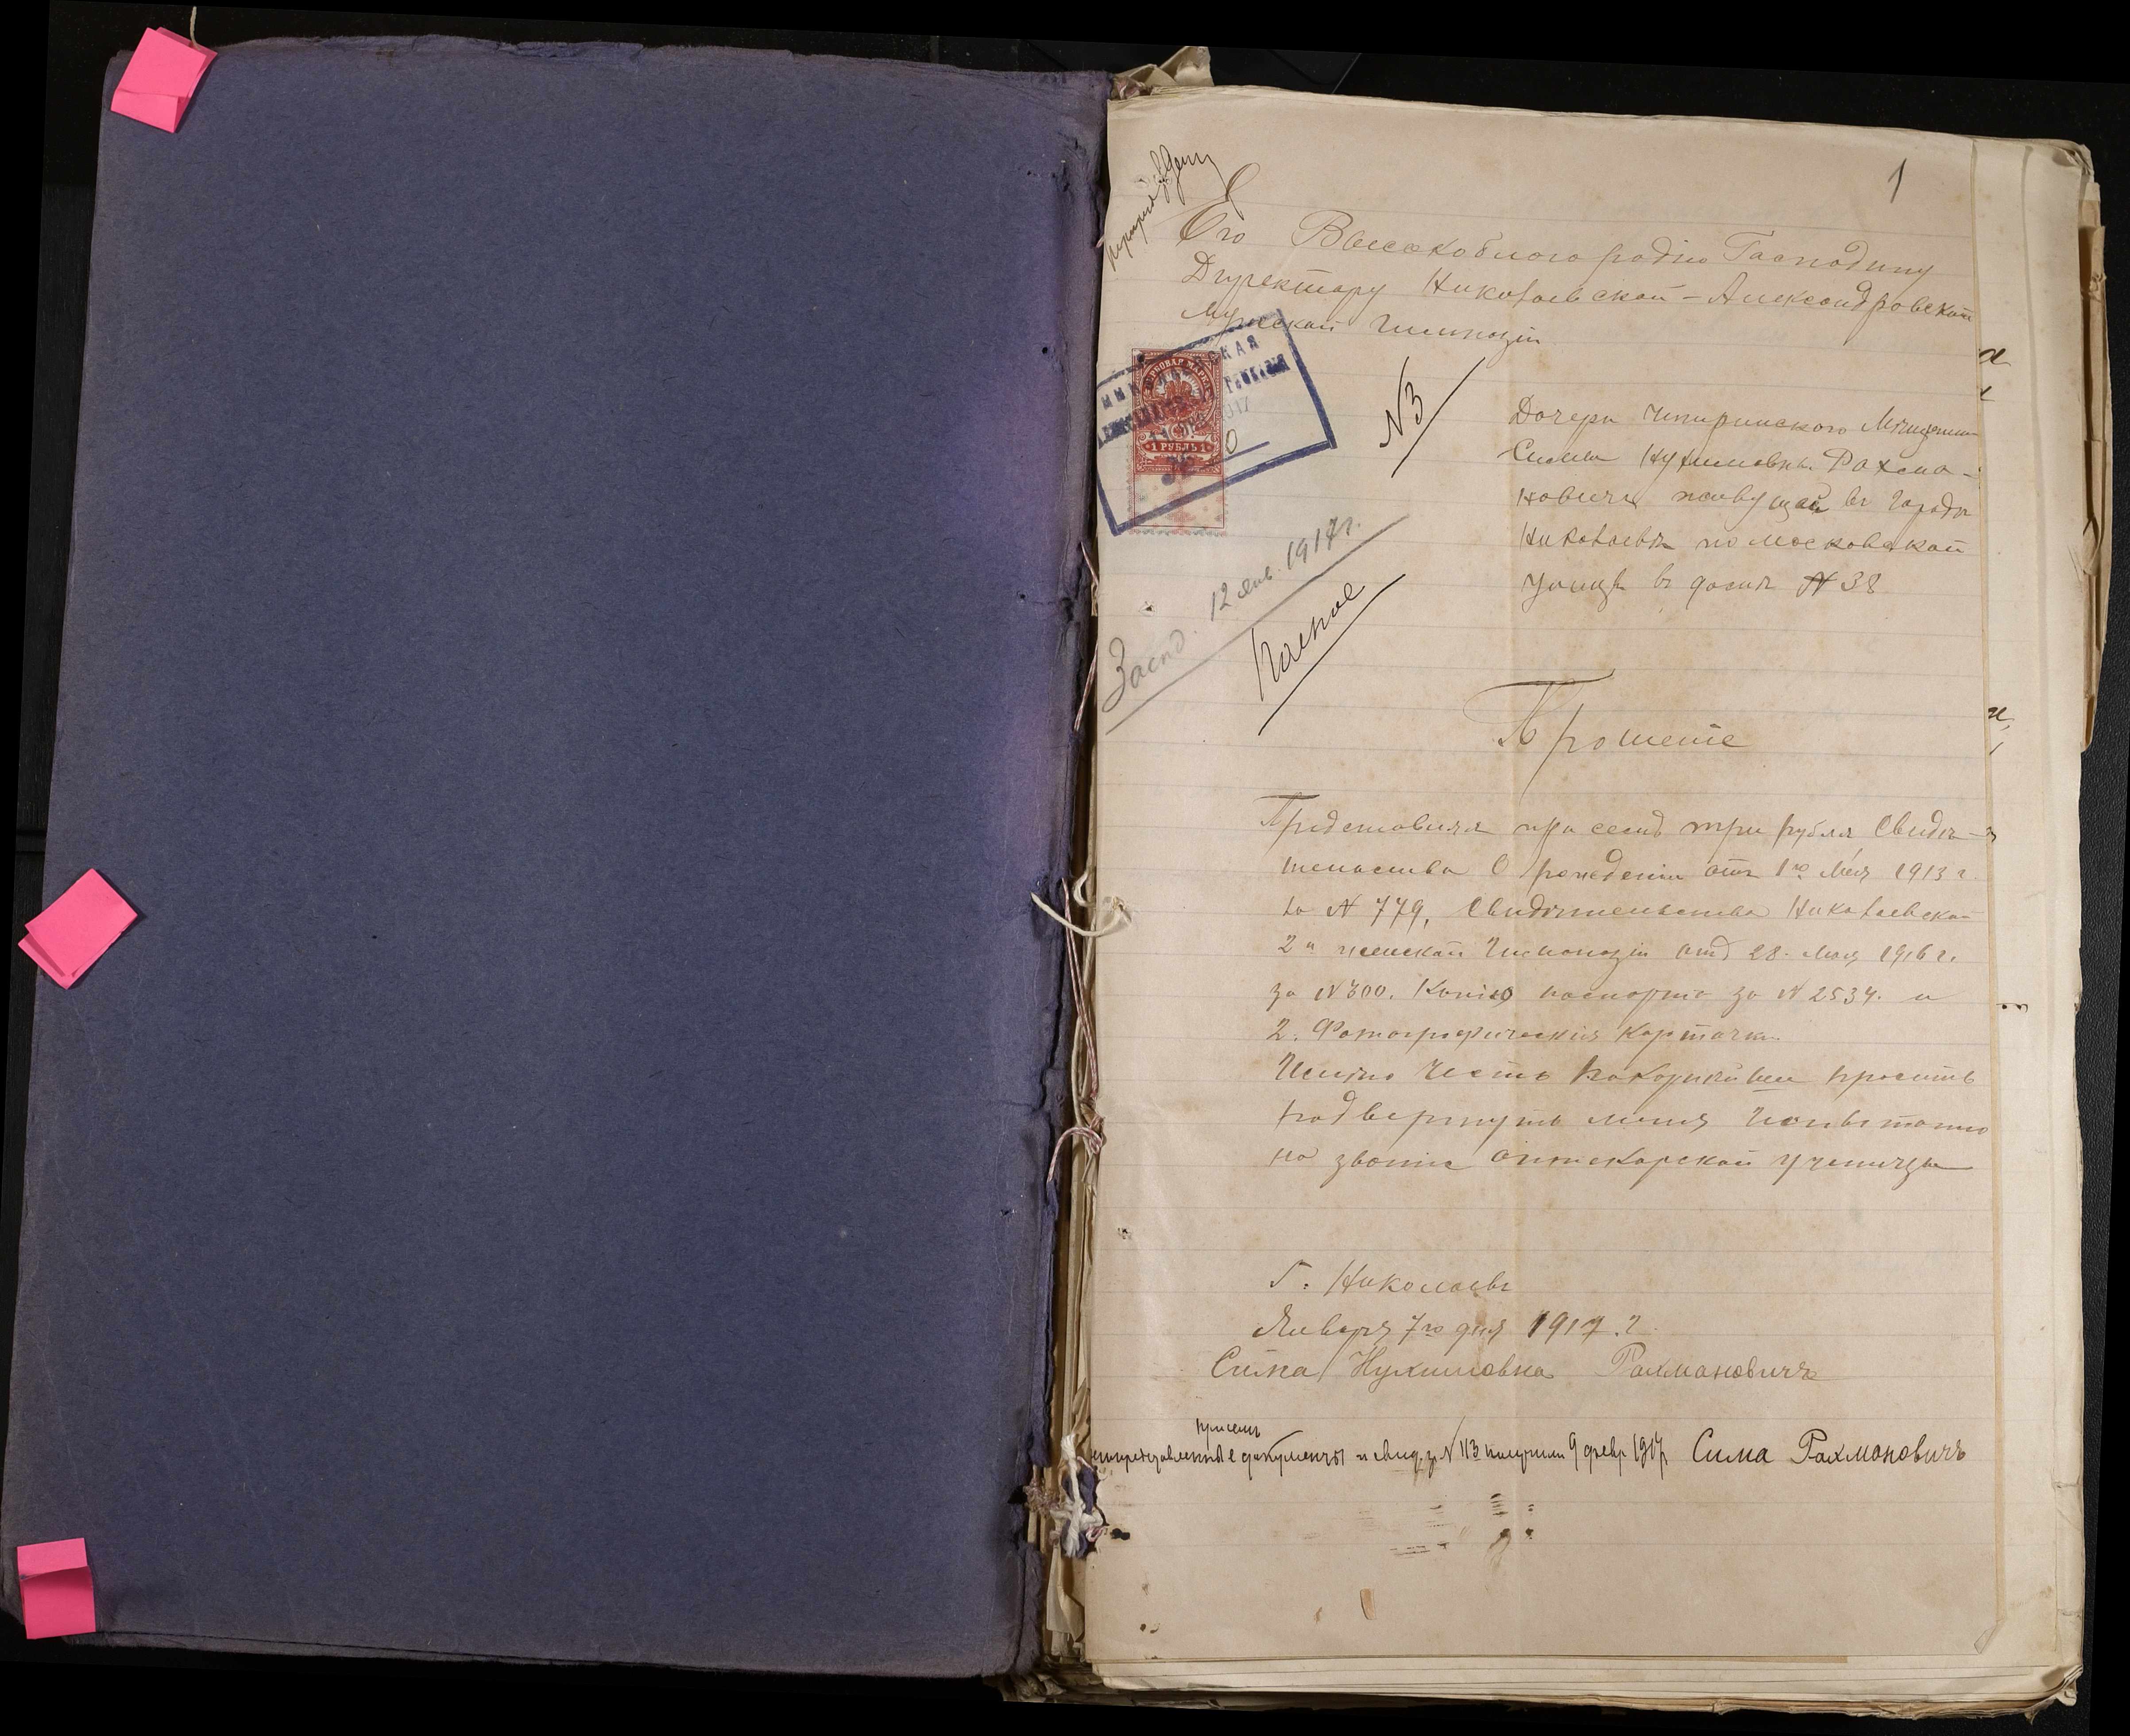 1
Его Высокоблагородію Господину
Директору Николаевской-Александровской
Мужской Гимназіи
ГЕРБОВАЯ МАРКА
1 РУБЛЬ 1
N3
Дочери Чигиринского Мѣщанина
Симы Нухимовны Рахма-
новичъ живущей въ городѣ
Николаевѣ по Московской
улицѣ въ домѣ N 38
12 янв. 1917 г.
Прошеніе
Представляя при семъ три рубля Свидѣ-
тельства О рожденіи отъ 1го Мая 1913 г.
за N 779, Свидѣтельства Николаевской
2й женской Гимназіи отъ 28 Мая 1916 г.
за N 300. Копію паспорта за N 2534. и
2. Фотографическія Карточки
Имѣю честь покорнѣйше просить
подвергнуть меня испытанію
на званіе аптекарской ученицы
Г. Николаевъ
Января 7го дня 1917 г.
Сима Нухимовна Рахмановичъ
документы и свид. за N 113 получила 9 февр. 1917 Сима Рахмановичъ